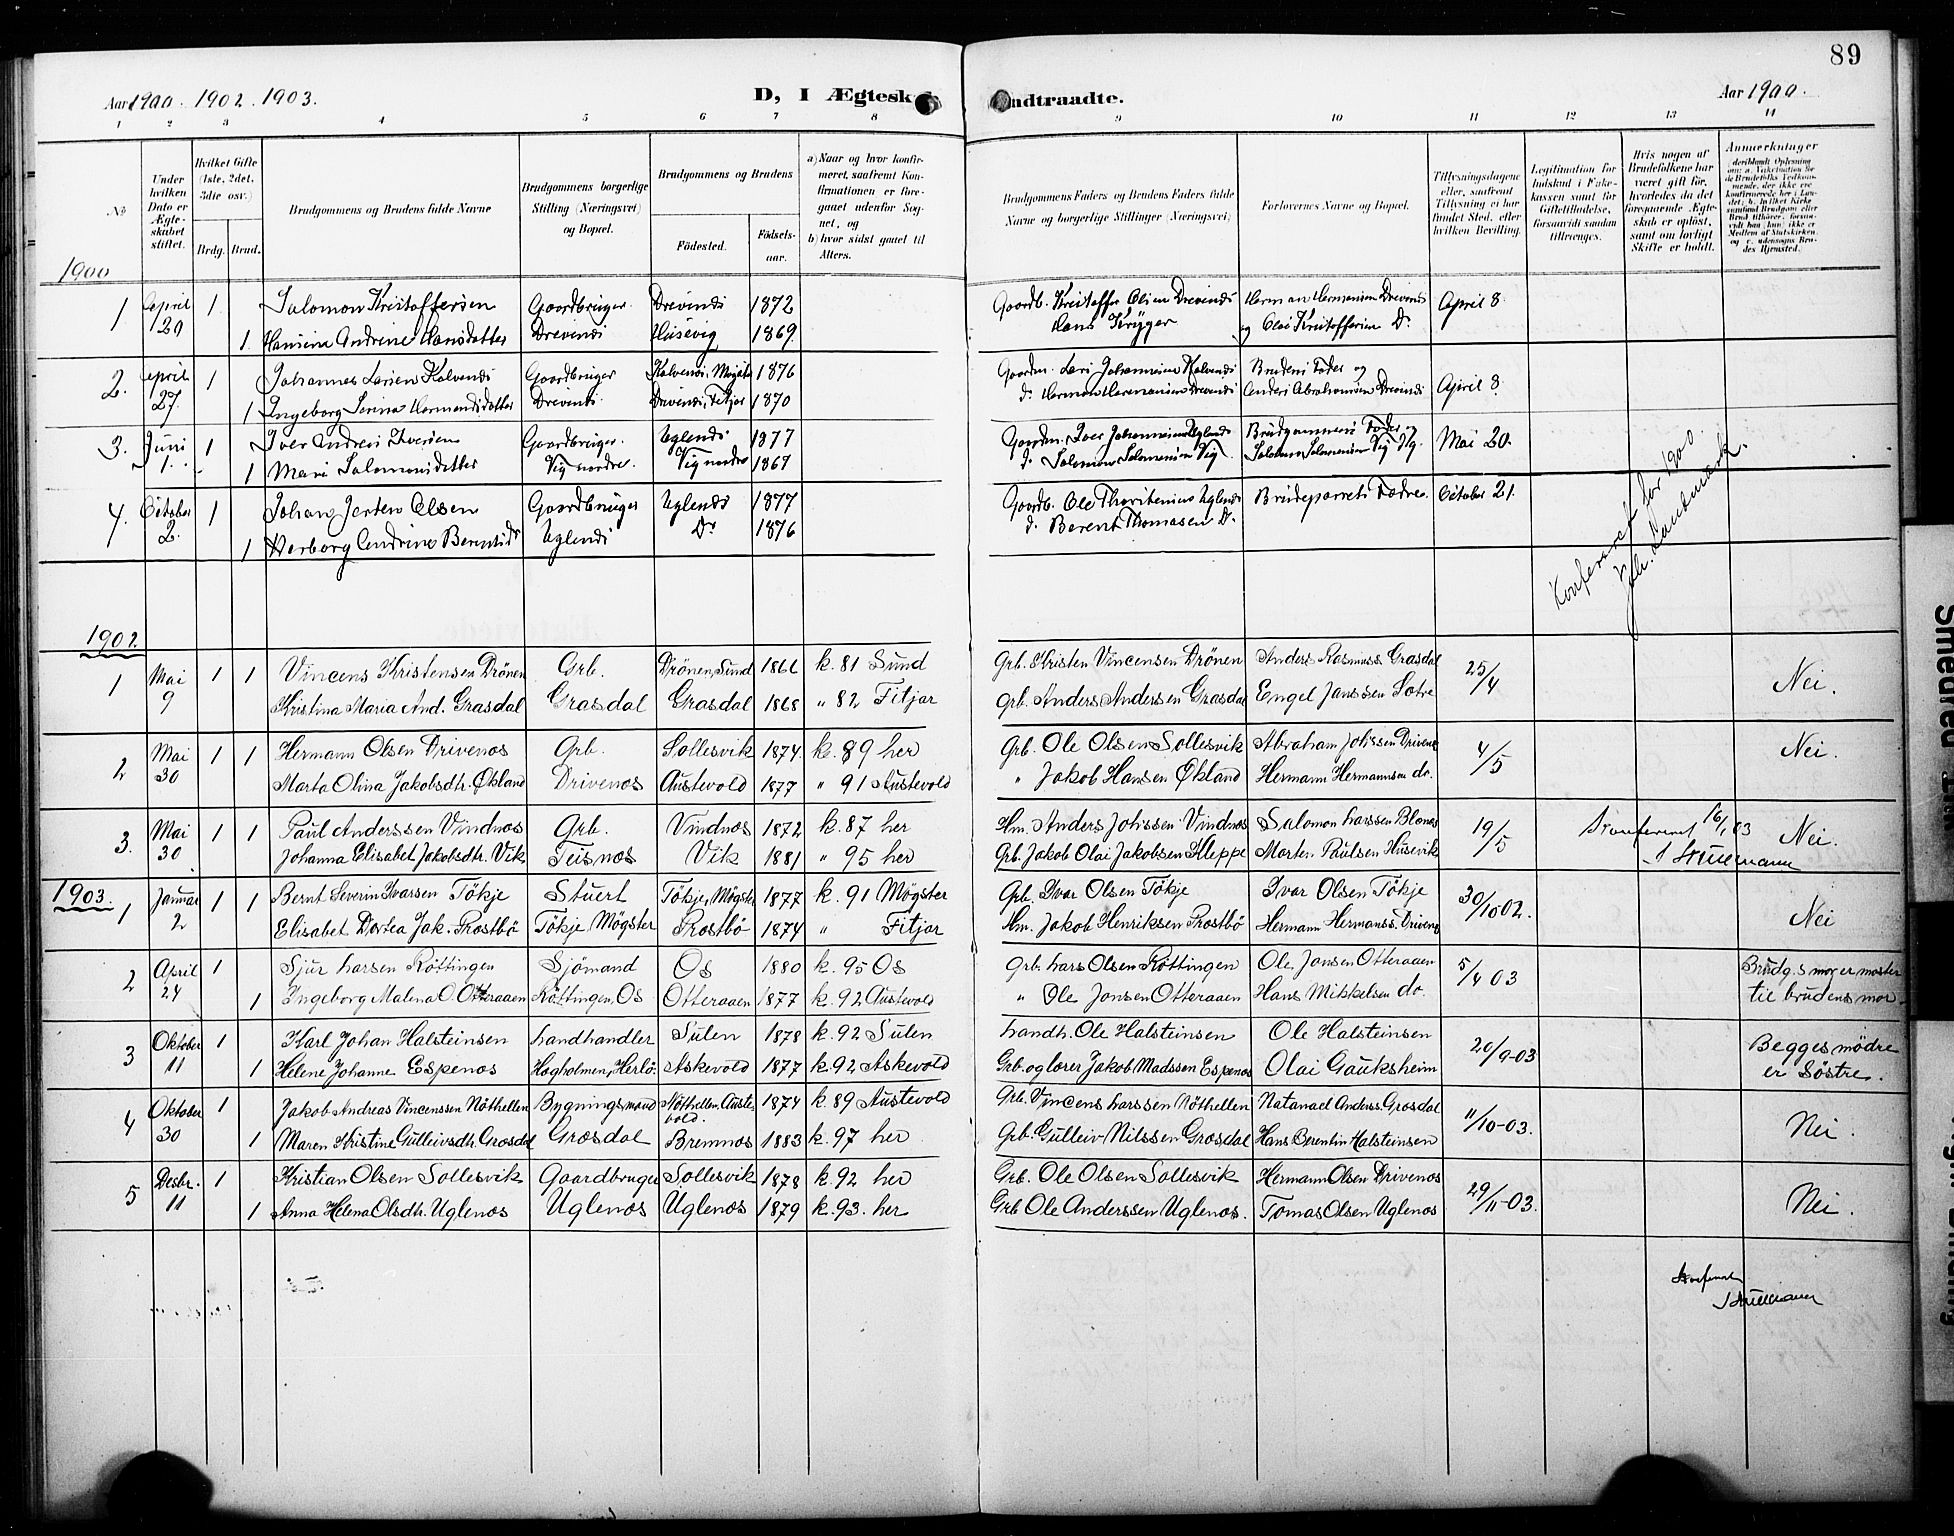 89
Aar 1900. 1902. 1903.
D, I Ægtesk
ndtraadte.
Aar 1900.
1 2 3 4 5 6 7 8 9 10 11 12 13 14
No
Under hvilken Dato er Ægteskabet stiftet.
Hvilket Gifte (1ste, 2det, 3die osv.)
Brdg. Brud.
Brudgommens og Brudens fulde Navne
Brudgommens borgerlige Stilling (Næringsvei) og Bopæl.
Brudgommens og Brudens
Fødested. Fødselsaar.
a) Naar og hvor konfirmeret, saafremt Konfirmationen er foregaaet udenfor Sognet, og
b) hvor sidst gaaet til Alters.
Brudgommens Faders og Brudens Faders fulde Navne og borgerlige Stillinger (Næringsvei)
Forlovernes Navne og Bopæl.
Tillysningsdagene eller, saafremt Tillysning ei har fundet Sted, efter hvilken Bevilling.
Legitimation for Indskud i Enkekassen samt for Giftetilladelse, forsaavidt saadan tiltrænges.
Hvis nogen af Brudefolkene har været gift før, hvorledes da det foregaaende Ægteskab er opløst, samt om lovligt Skifte er holdt.
Anmerkninger
1900
1 April 20 1 Salomon Kristoffersen Gaardbruger Drevenæs 1872 Gaardb. Kristoffer Olsen Drevenæs Herman Hermansen Drevenæs April 8
1 Hansina Andrine Hansdatter Drevenæs Husevig 1869 Hans Krÿger og Olai Kristoffersen Do.
2. April 27. 1 Johannes Larsen Kalvenæs Gaardbruger Kalvenæs, Møgster 1876 Gaardm. Lars Johannesen Kalvenæs Brudens Fader og April 8
1 Ingeborg Serina Hermansdatter Drevenæs Drevenæs, Fitjar 1870 d. Herman Hermansen Drevenæs Anders Abrahamsen Drevenæs
3. Juni 1. 1 Iver Andreas Iversen Gaardbruger. Uglenæs 1877 Gaardm. Iver Johannesen Uglenæs Brudgommens Fader og Mai 20.
1 Mari Salomonsdatter Vig nordre. Vig nordre 1869 d. Salomon Salomonsen Vig Salomon Salomonsen Vig
4. October 2. 1 Johan Jorten Olsen Gaardbruger Uglenæs 1877 Gaardb. Ole Thorstensen Uglenæs Brudeparrets Fædre. October 21.
1 Herborg Andrine Berentsdr Uglenæs Do 1876 d. Berent Thomasen Do.
Konfereret for 1900
Joh. Landmark.
1902.
1 Mai 9 1 1 Vincens Kristensen Drönen Grb. Drönen, Sund 1866 k. 81 Sund Grb. Kristen Vincensen Drönen Anders Rasmuss. Grasdal 25/4 Nei.
Kristina Maria And. Grasdal Grasdal Grasdal 1868 " 82 Fitjar Grb. Anders Anderssen Grasdal Engel Janssen Sotre
2 Mai 30 1 1 Hermann Olsen Drivenæs Grb. Sollesvik 1874. k. 89 her Grb. Ole Olsen Sollesvik Abraham Johssen Drivenæs 4/5 Nei.
Marta Olina Jakobsdtr. Økland Drivenæs Austevold 1877 " 91 Austevold " Jakob Hansen Økland Hermann Hermannsen do.
3. Mai 30 1 1 Paul Anderssen Vindnæs Grb. Vindnæs 1872 k. 87 her Hm. Anders Johssen Vindnæs Salomon Larssen Blænæs 19/5 Nei.
Johanna Elisabet Jakobsdtr. Vik Teisnæs Vik 1881 " 95 her Grb. Jakob Olai Jakobsen Kleppe Morten Paulsen Husevik
Konfereret 16/1 03
1903.
1 Januar 2 1 1 Bernt Severin Ivarsen Tökje Stuert Tökje, Møgster 1877 k. 91 Mögster Grb. Ivar Olsen Tökje Ivar Olsen Tökje 30/10 02. Nei
Elisabet Dortea Jak. Prostbö Tökje, Mögster Prostbö 1874 " Fitjar Hm. Jakob Henriksen Prostbö Hermann Hermanss. Drivenæs
2 April 24 1 Sjur Larsen Röttingen Sjömand Os 1880 k. 95 Os Grb. Lars Olsen Röttingen Ole Jansen Otteraaen 5/4 03 Brudg.s mor er moster
1 Ingeborg Malena O. Otteraaen Röttingen, Os Otteraaen 1877 k. 92 Austevold " Ole Jonsen Otteraaen Hans Mikkelsen do. til brudens mor.
3 Oktober 11 1 Karl Johan Halsteinsen Landhandler Sulen 1878 k. 92 Sulen Landh. Ole Halsteinsen Ole Halsteinsen 20/9-03 Begges mödre
1 Helene Johanne Espenæs Hagholmen, Herlö. Askevold 1877 k. 92 Askevold Grb. og lærer Jakob Madssen Espenæs Olai Gauksheim er Söstre.
4 Oktober 30 1 Jakob Andreas Vincenssen Nöthellen Bygningsmand Nöthellen, Austevold. 1874 k. 89 Austevold Grb. Vincens Larssen Nöthellen Natanael Anderss. Grasdal 11/10-03. Nei.
1 Maren Kristine Gulleivsdtr. Grasdal Grasdal Bremnes 1883 k. 97 her Grb. Gulleiv Nilssen Grasdal Hans Berentin Halsteinsen
5 Desbr. 11 1 Kristian Olsen Sollesvik Gaardbruger Sollesvik 1878 k. 92 her Grb. Ole Olsen Sollesvik Hermann Olsen Drivenæs 29/11-03. Nei.
1 Anna Helena Olsdtr. Uglenæs Uglenæs Uglenæs 1879 k. 93. her Grb Ole Anderssen Uglenæs. Tomas Olsen Uglenæs
Konfereret